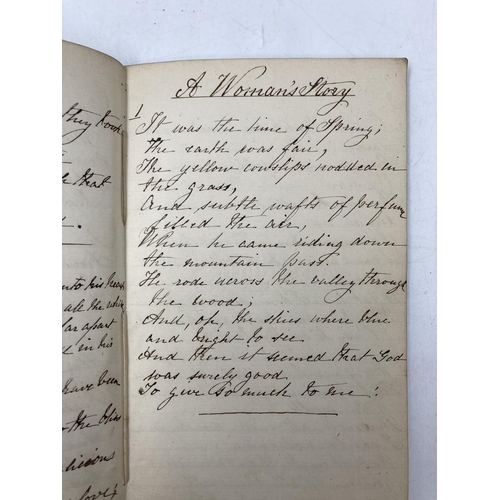 they took
that
into his heart
all the while
far apart
in his
have been
the blue
licious
love;
A Woman's Story
1
It was the time of Spring;
The earth was fair,
The yellow cowslips nodded in
the grass,
And subtle wafts of perfume
filled the air,
When he came riding down
the mountain pass.
He rode across the valley through
the wood;
And, oh, the skies where blue
and bright to see
And then it seemed that God
was surely good
To give so much to me!